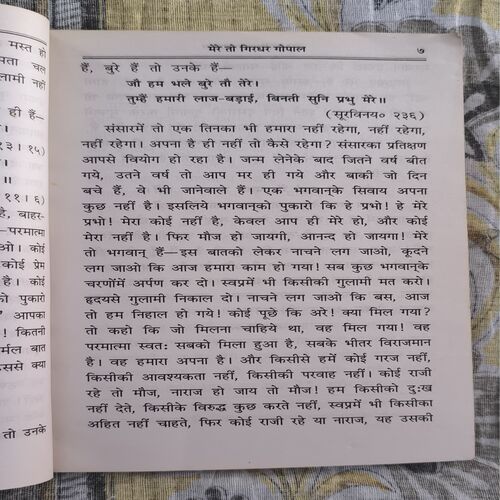 मस्त हो
चल
नहीं
ही हैं—
१३। १५)
११। ६)
है, बाहर-
—परमात्मा
ओ। कोई
कोई प्रेम
है। कोई
को पुकारो
" आपका
! कितनी
बात
क्या
तो उनके
मेरे तो गिरधर गोपाल
७
हैं, बुरे हैं तो उनके हैं—
जौ हम भले बुरे तौ तेरे।
तुम्हैं हमारी लाज-बड़ाई, बिनती सुनि प्रभु मेरे॥
(सूरविनय० २३६)
संसारमें तो एक तिनका भी हमारा नहीं रहेगा, नहीं रहेगा,
नहीं रहेगा। अपना है ही नहीं तो कैसे रहेगा? संसारका प्रतिक्षण
आपसे वियोग हो रहा है। जन्म लेनेके बाद जितने वर्ष बीत
गये, उतने वर्ष तो आप मर ही गये और बाकी जो दिन
बचे हैं, वे भी जानेवाले हैं। एक भगवान्‌के सिवाय अपना
कुछ नहीं है। इसलिये भगवान्‌को पुकारो कि हे प्रभो! हे मेरे
प्रभो! मेरा कोई नहीं है, केवल आप ही मेरे हो, और कोई
मेरा नहीं है। फिर मौज हो जायगी, आनन्द हो जायगा! मेरे
तो भगवान् हैं—इस बातको लेकर नाचने लग जाओ, कूदने
लग जाओ कि आज हमारा काम हो गया! सब कुछ भगवान्‌के
चरणोंमें अर्पण कर दो। स्वप्नमें भी किसीकी गुलामी मत करो।
हृदयसे गुलामी निकाल दो। नाचने लग जाओ कि बस, आज
तो हम निहाल हो गये! कोई पूछे कि अरे! क्या मिल गया?
तो कहो कि जो मिलना चाहिये था, वह मिल गया! वह
परमात्मा स्वतः सबको मिला हुआ है, सबके भीतर विराजमान
है। वह हमारा अपना है। और किसीसे हमें कोई गरज नहीं,
किसीकी आवश्यकता नहीं, किसीकी परवाह नहीं। कोई राजी
रहे तो मौज, नाराज हो जाय तो मौज! हम किसीको दुःख
नहीं देते, किसीके विरुद्ध कुछ करते नहीं, स्वप्नमें भी किसीका
अहित नहीं चाहते, फिर कोई राजी रहे या नाराज, यह उसकी